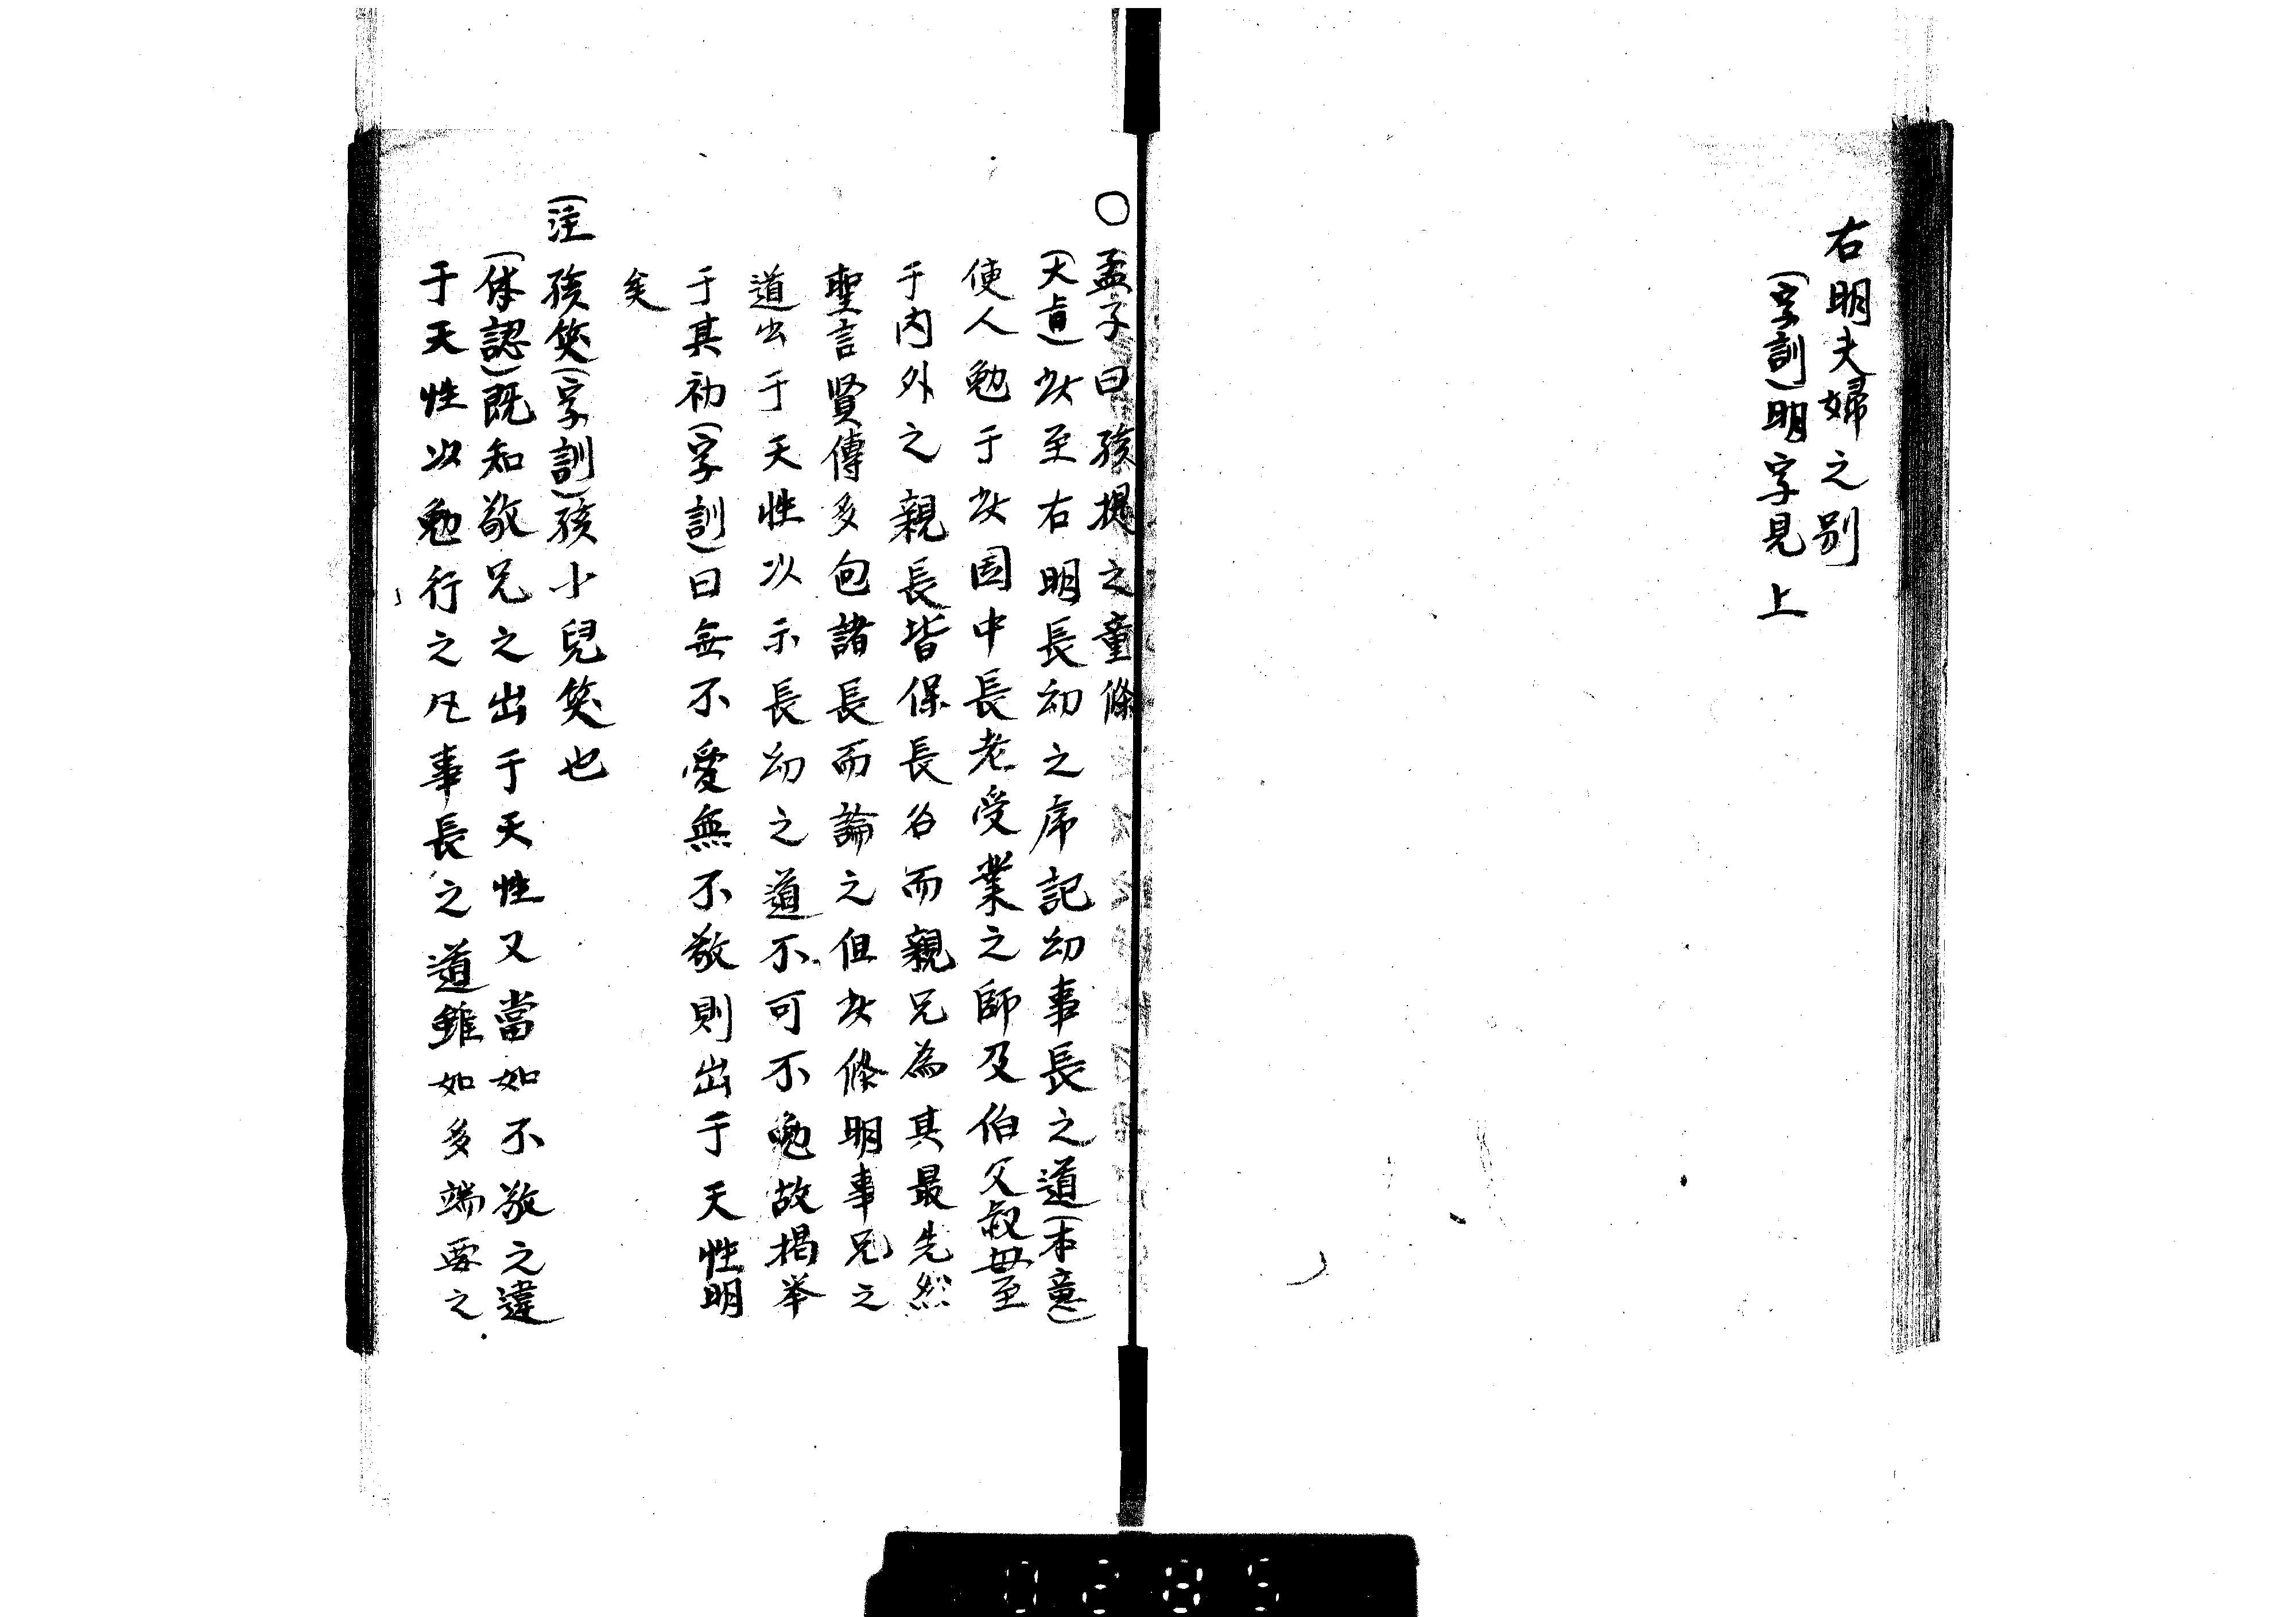 右明夫婦之別
(字訓)明字見上
○孟子曰孩提之童條
(大旨)此至右明長幼之序記幼事長之道(本意)
使人勉于此国中長老受業之師及伯父叔母至
于内外之親長皆保長名而親兄為其最先然
聖言賢傳多包諸長而論之但此條明事兄之
道出于天性以示長幼之道不可不勉故掲举
于其初(字訓)曰無不愛無不敬則出于天性明
矣
(注 孩笑(字訓)孩小兒笑也
(体認)既知敬兄之出于天性又當如不敬之違
于天性以勉行之凡事長之道雖如多端要之